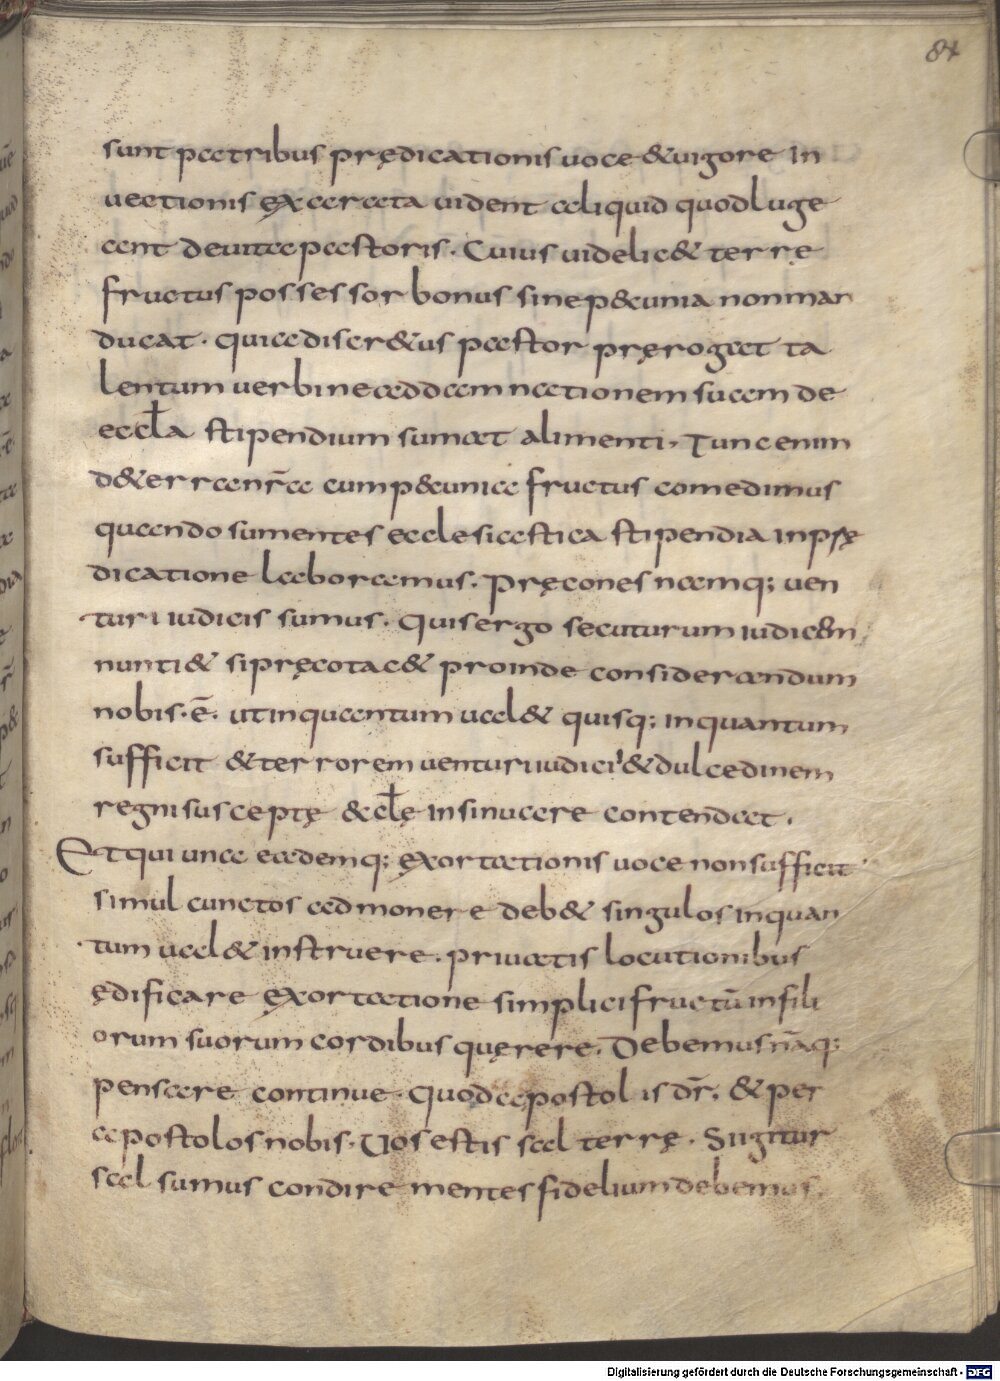 84
sunt patribus prędicationis uoce & uigore in
uectionis exaggerata uident aliquid quod luge
ant deuita pastoris. Cuius uidelic& terrę
fructus possessor bonus sine p&cunia non man
ducat. quia discr&us pastor pręrogat ta
lentum uerbi ne ad damnationem suam de
eccl̄a stipendium sumat alimenti, Tunc enim
d& terra nr̄a cum p&cunia fructus comedimus
quando sumentes ecclesiastica stipendia inprę
dicatione laboramus. Pręcones namq; uen
turi iudicis sumus. Quis ergo secuturum iudicem
nunti& si pręco tac& proinde considerandum
nobis. ē. ut in quantum ual& quisq; inquantum
sufficit & terrorem uenturi iudicis & dulcedinem
regni susceptę &cl̄ę insinuare contendat.
Et qui una eademq; exortationis uoce non sufficit
simul cunctos admonere deb& singulos inquan
tum ual& instruere. priuatis locutionibus
ędificare exortatione simplici fructū infili
orum suorum cordibus quęrere. Debemus nāq;
pensare continue. Quod apostolis dr̄. & per
apostolos nobis. Uos estis sal terrę. Si igitur
sal sumus condire mentes fidelium debemus.
Digitalisierung gefördert durch die Deutsche Forschungsgemeinschaft - DFG